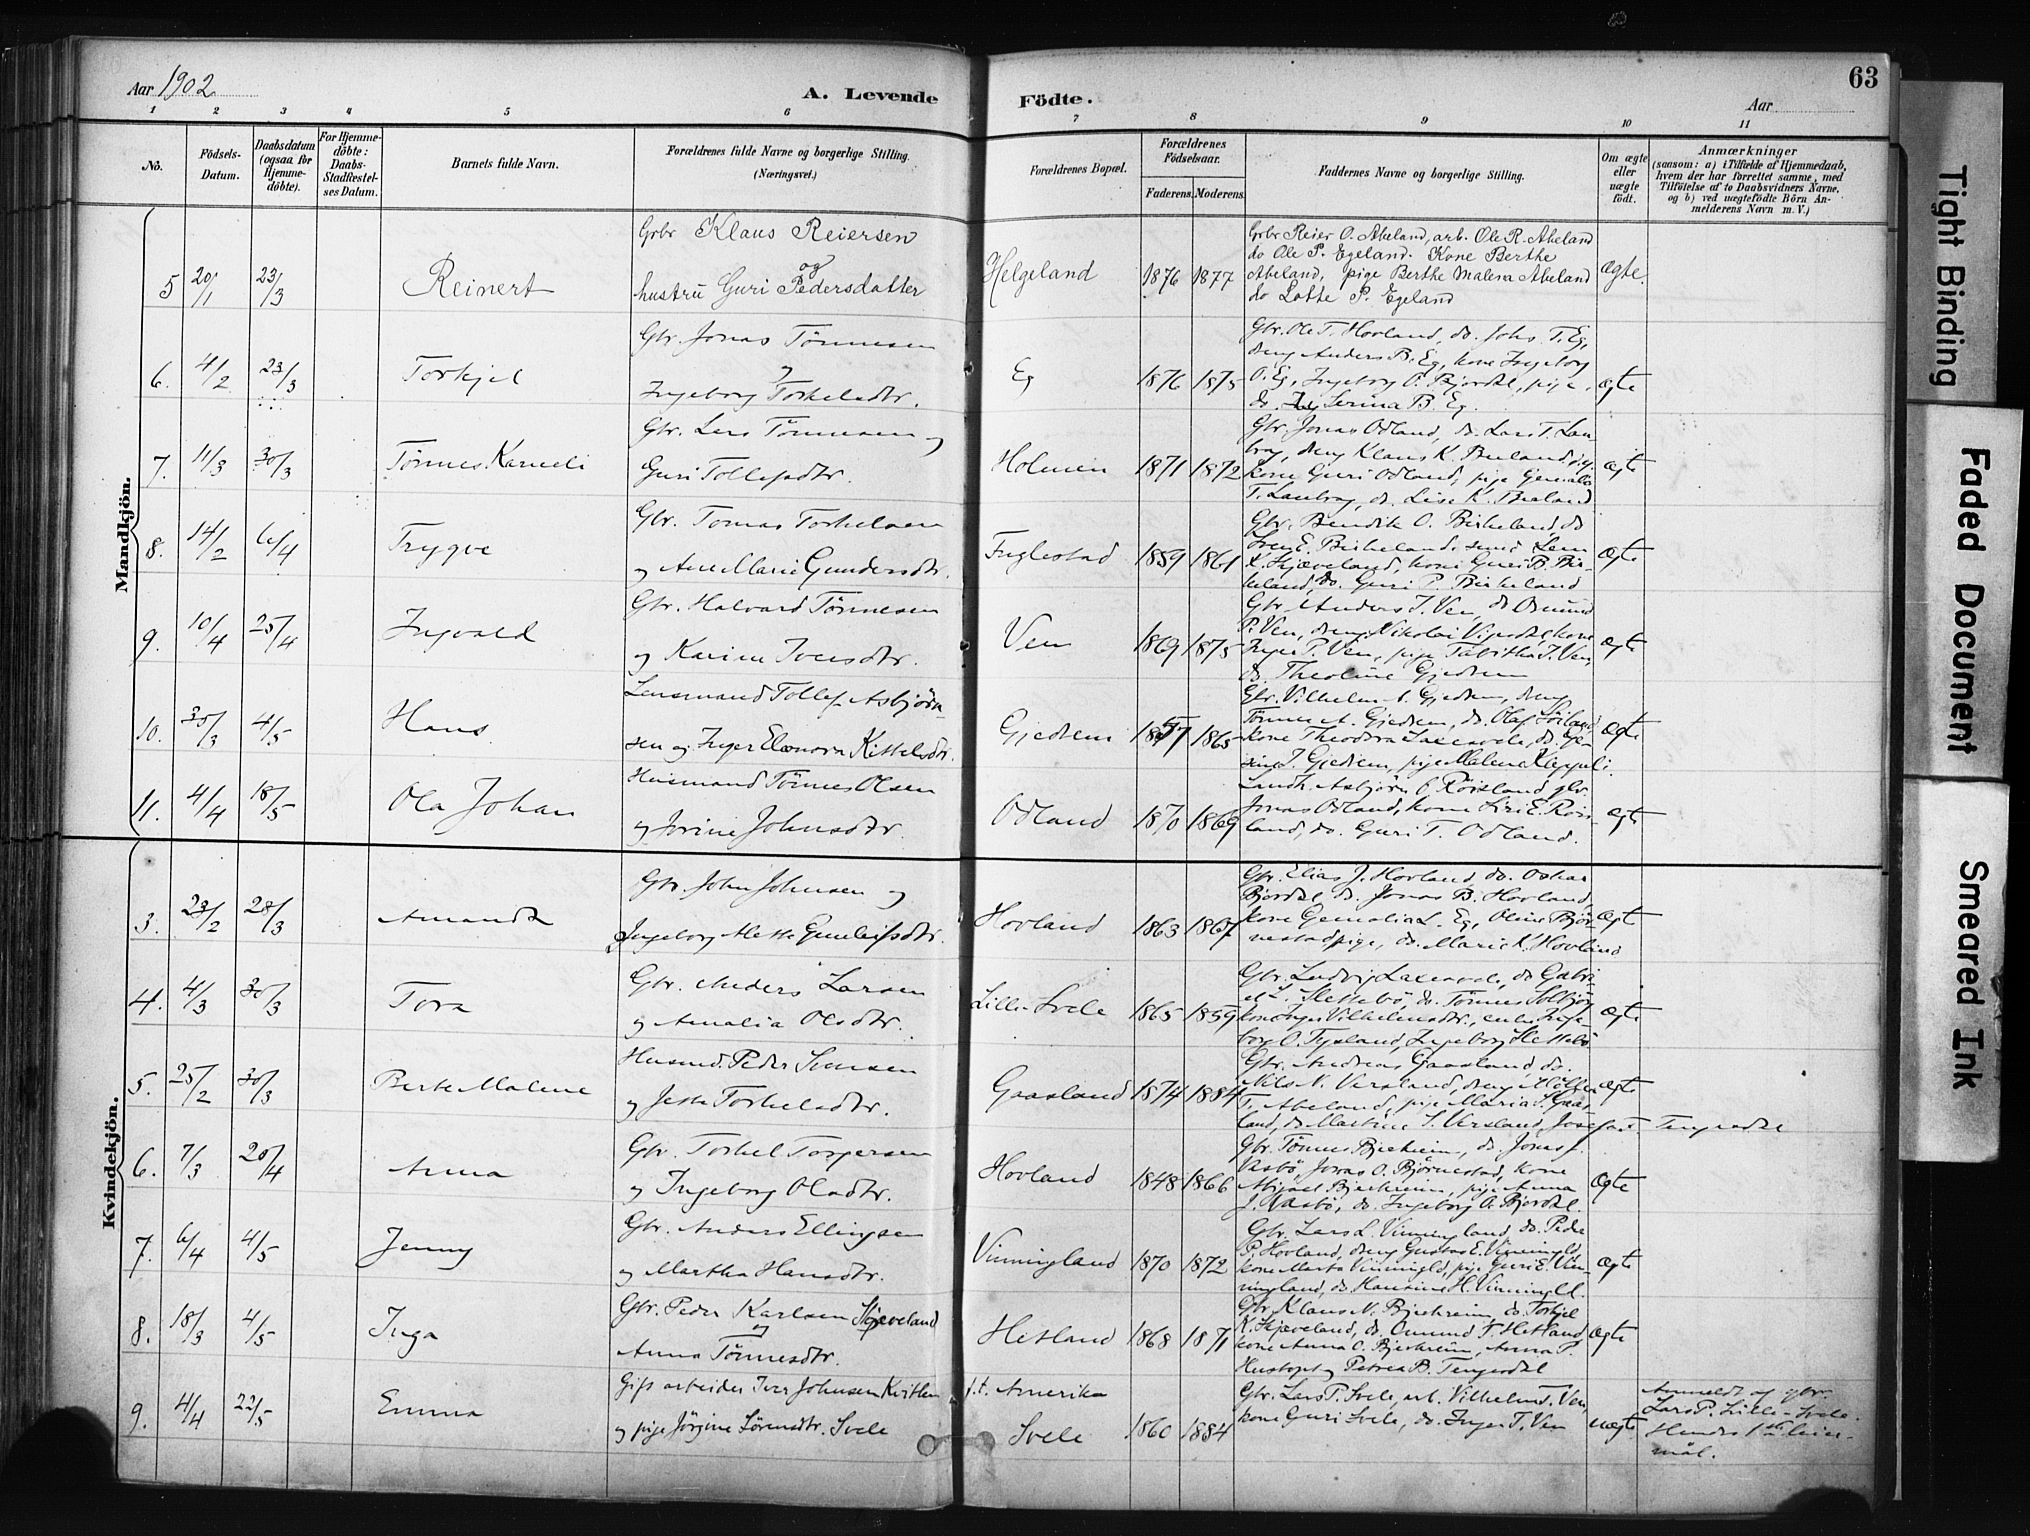 63
Aar 1902 A. Levende Födte. Aar
1 2 3 4 5 6 7 8 9 10 11
No. Födsels-Datum. Daabsdatum (ogsaa for Hjemmedöbte). For Hjemmedöbte: Daabs-Stadfæstelses Datum. Barnets fulde Navn. Forældrenes fulde Navne og borgerlige Stilling. (Næringsvei.) Forældrenes Bopæl. Forældrenes Födselsaar. Faderens. Moderens. Faddernes Navne og borgerlige Stilling. Om ægte eller uægte födt. Anmærkninger (saasom: a) i Tilfælde af Hjemmedaab, hvem der har forrettet samme, med Tilföielse af to Daabsvidners Navne, og b) ved uægtefödte Börn Anmelderens Navn m. V.)
Mandkjön.
5 20/1 23/3 Reinert Grbr Klaus Reiersen og hustru Guri Pedersdatter Helgeland 1876 1877 Grbr Reier O. Abeland, arb. Ole R. Abeland
do Ole P. Egeland. Kone Berthe
Abeland, pige Berthe Malena Abeland
do Lotte P. Egeland
Ægte.
6. 4/2 23/3 Torkjel Gbr. Jonas Tönnesen og Ingeborg Torkelsdtr. Eg 1876 1875 Gbr. Ole T. Hovland, do. Johs. T. Eg,
dreng Anders B. Eg, kone Ingeborg
O. Eg, Ingeborg O. Bjordal, pige,
do. Serina B. Eg.
ægte
7. 11/3 30/3 Tönnes Karneli Gbr. Lars Tönnesen og Guri Tollefsdtr. Holmen 1871 1872 Gbr. Jonas Odland, do. Lars T.
dreng Klaus K.
kone Guri Odland, pige
ægte
8. 14/2 6/4 Trygve Gbr. Tomas Torkelsen og Ane Marie Gundersdtr. Fuglestad 1859 1861 Gbr. Bendik O. Birkeland, do
E. Birkeland,
Skjæveland, kone Guri B. Bir-
keland, do. Guri P. Birkeland
Ægte
9. 10/4 25/4 Ingvald Gbr. Halvard Tönnesen og Karine Iversdtr. Ven 1869 1875 Gbr. Anders I. Ven, do Omund
P. Ven, dreng Nikolai Vigesdal, kone
Inger P. Ven, pige Tabitha I. Ven,
do. Theoline Gjedrem
ægte
10. 30/3 4/5 Hans Lensmand Tollef Asbjörn-
sen og Inger Elenora Kittelsdtr. Gjedrem 1857 1865 Gbr. Vilhelm Gjedrem, dreng
Tönnes A. Gjedrem, do. Olaf
kone Theodora Laxesvele, do.
Gjedrem, pige Malene Kleppeli.
Ægte
11. 4/4 18/5 Ola Johan Husmand Tönnes Olsen og Jorine Johnsdtr. Odland 1870 1869 Landh. Asbjörn O. Röisland, gbr.
Jonas Odland, kone Siri E. Röis-
land, do. Guri T. Odland.
ægte
Kvindekjön.
3. 23/2 28/3 Amanda Gbr. John Johnsen og Ingeborg Mette Gunleifsdtr. Hovland 1863 1867 Gbr. Elias J. Hovland, do. Oskar
Bjordal, do. Jonas B. Hovland,
kone Gemalia L. Eg, Oline Björ-
nestad pige, do. Marie K. Hovland
ægte
4. 4/3 30/3 Tora Gbr. Anders Larsen og Amalia Olsdtr. Lille-Svele 1865 1859 Gbr. Ludvig Laxesvele, do Gabri-
el L. Slettebö, do. Tönnes Solbjör
kone Inger Vilhelmsdtr., enke Inge-
borg O. Tysland, Ingeborg Slettebö
ægte
5. 25/2 30/3 Berte Malene Husmd. Peder Simsen og Jette Torkelsdtr. Gaasland 1874 1884 Gbr. Andreas Gaasland, do.
Nils N. Versland, dreng
T. Abeland, pige Maria S. Gaas-
land, do Martine S. Versland, Josefat Tengesdal
ægte
6. 7/3 20/4 Anna Gbr. Torkel Torgersen og Ingeborg Olsdtr. Hovland 1848 1866 Gbr. Tönnes Bjerheim, do. Jonas J.
Vasbö, Jonas O. Björnestad, kone
Abigael Bjerkreim, pige Anna
J. Vasbö, do. Ingeborg O. Bjordal.
ægte
7. 6/4 4/5 Jenny Gbr. Anders Ellingsen og Martha Hansdtr. Vinningland 1870 1872 Gbr. Lars L. Vinningland, do. Peder
P. Hovland, dreng Gustav E. Vinningld,
kone Marta Vinningld, pige Guri E. Vin-
ningland, do. Hansine H. Vinningld.
ægte
8. 18/3 4/5 Inga Gbr. Peder Karlsen Skjæveland og Anna Tönnesdtr. Hetland 1868 1871 Gbr. Klaus N. Bjerkreim, do. Torkjel
K. Skjæveland, do. Omund T. Hetland
kone Anna O. Bjerkreim, Anna P.
Hustoft, Petrea B. Tengesdal
ægte
9. 4/4 22/5 Emma Gift arbeider Iver Johnsen Kvitlen og pige Jörgine Sörensdtr. Svele f.t. Amerika Svele 1860 1884 Gbr. Lars P. Svele, arb. Vilhelm T. Ven,
kone Guri Svele, do. Inger T. Ven
uægte Anmeldt af gbr.
Lars P. Lille-Svele.
Hendes 1ste leier-
mål.
Tight Binding
Faded Document
Smeared Ink